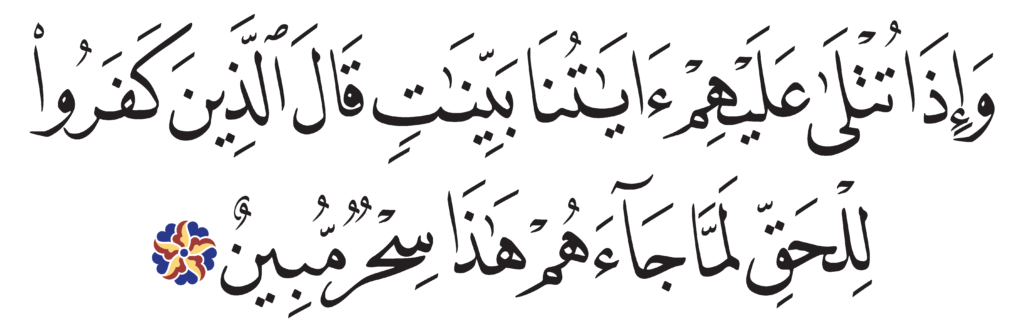 وَإِذَا تُتْلَىٰ عَلَيْهِمْ ءَايَـٰتُنَا بَيِّنَـٰتٍ قَالَ ٱلَّذِينَ كَفَرُوا۟
لِلْحَقِّ لَمَّا جَآءَهُمْ هَـٰذَا سِحْرٌ مُّبِينٌ